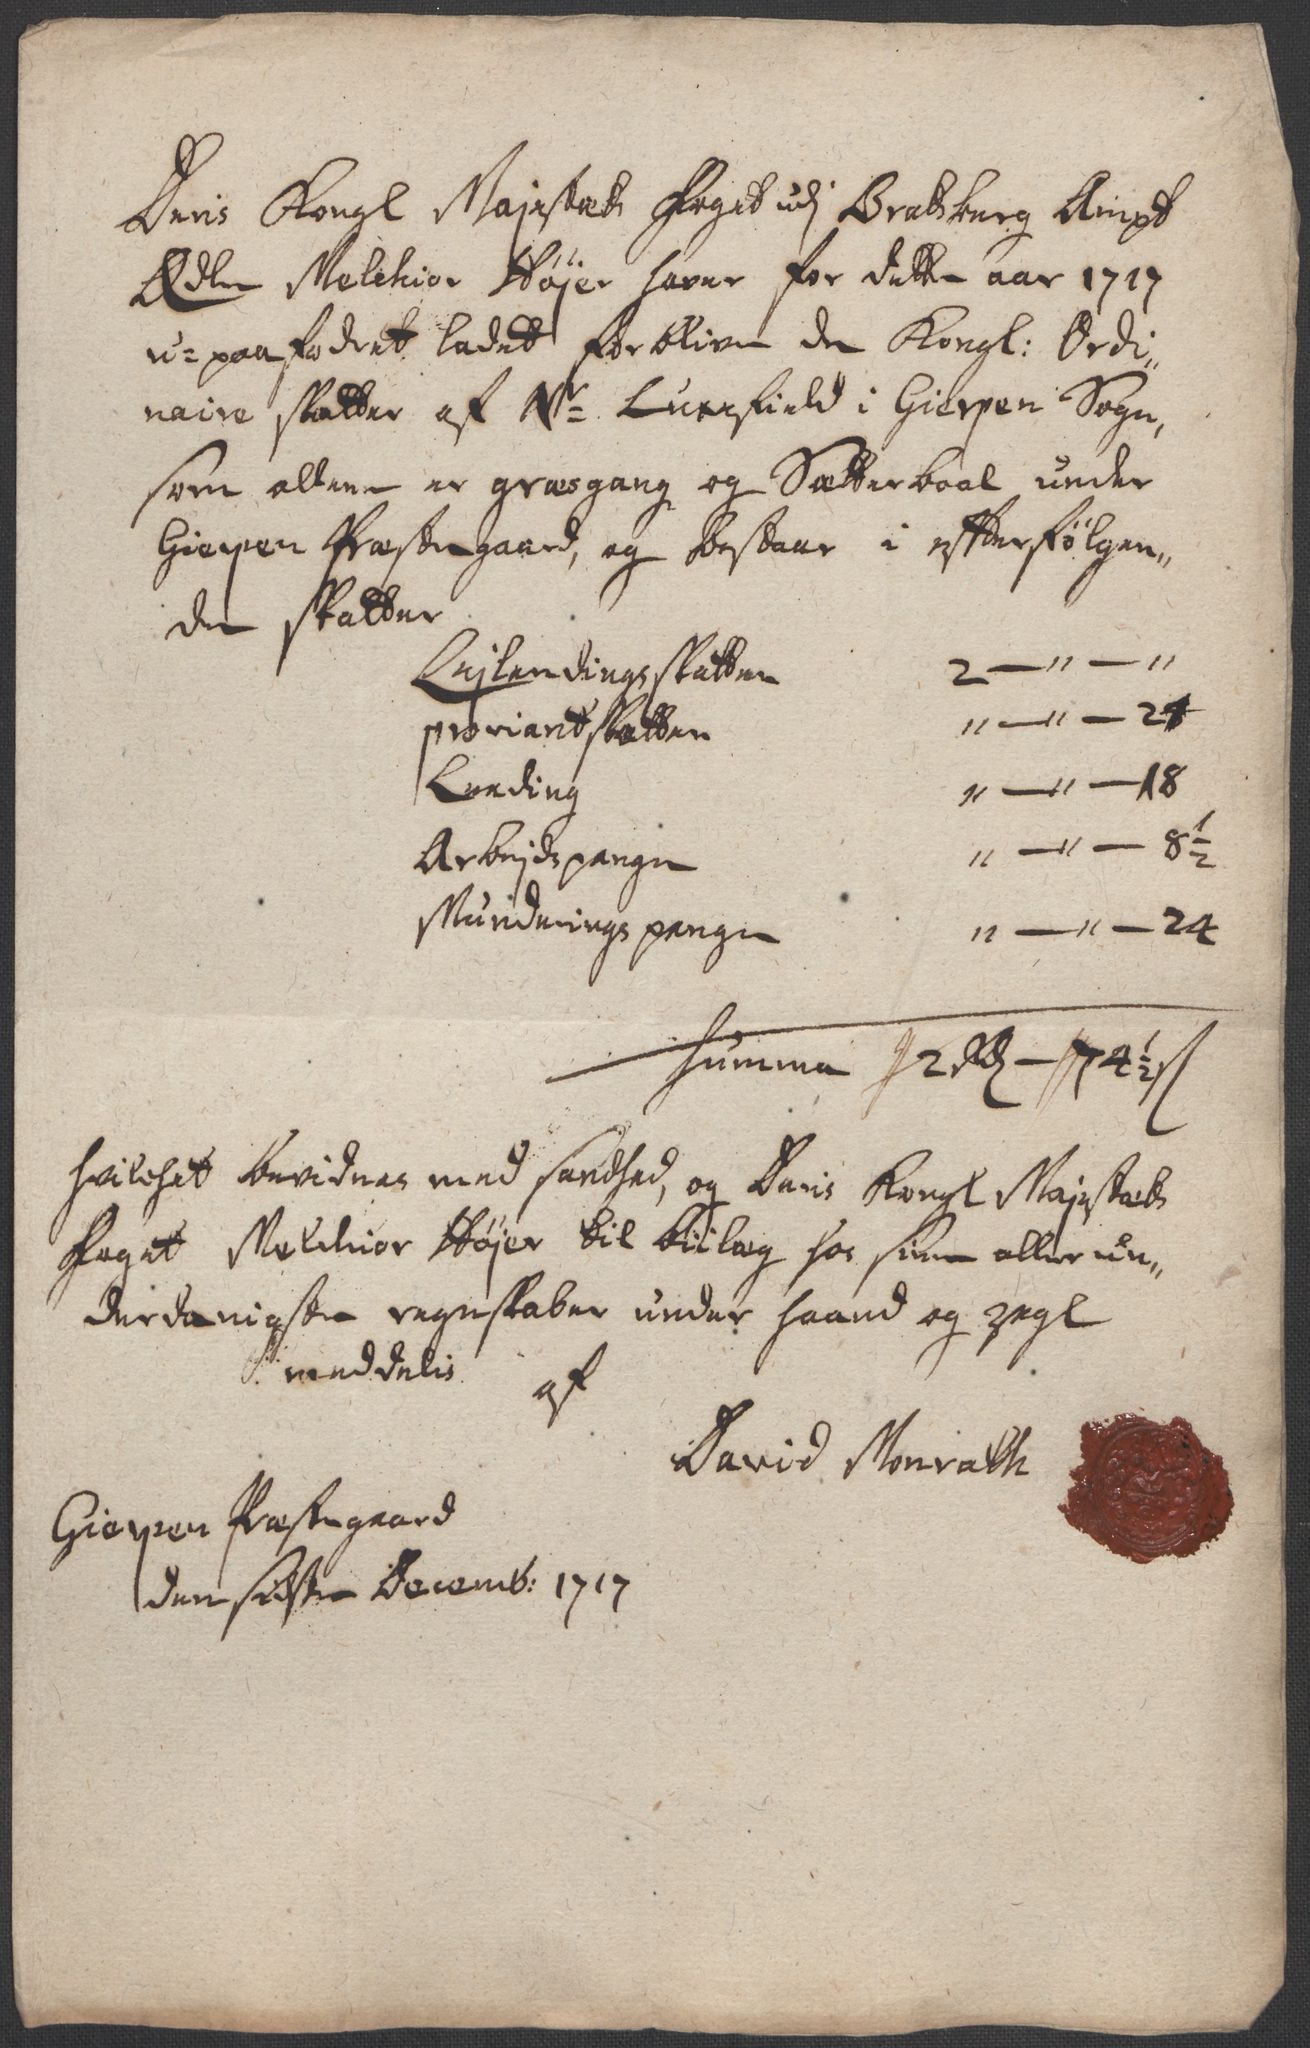 Deris Kongl Majestets foget udj Bratsberg Ampt
Ædle Melchior Höjer haver for dette aar 1717
u=paafodret ladet forblive de Kongl: Ordi„
naire skatter af Nr= Luxefield i Gierpen Sogn,
som allene er græsgang og Sætterboel under
Gierpen Præstegaard, og bestaar i efterfølgen„
de skatter
Lejlendings skatten 2 — " — "
proviantskatten " — " — 24
Leeding " — " — 18
Arbejdspenge " — " — 8½
Munderings penge " — " — 24
Summa 2 rdr — 74½ s
hvilchet bevidnes med sandhed, og Deris Kongl Majestets
foget Melchior Höjer til biilag hos sine aller un„
derdanigste regnskaber under haand og zegl
meddelis af
David Monrath
Gierpen Præstegaard
den sidste Decemb: 1717